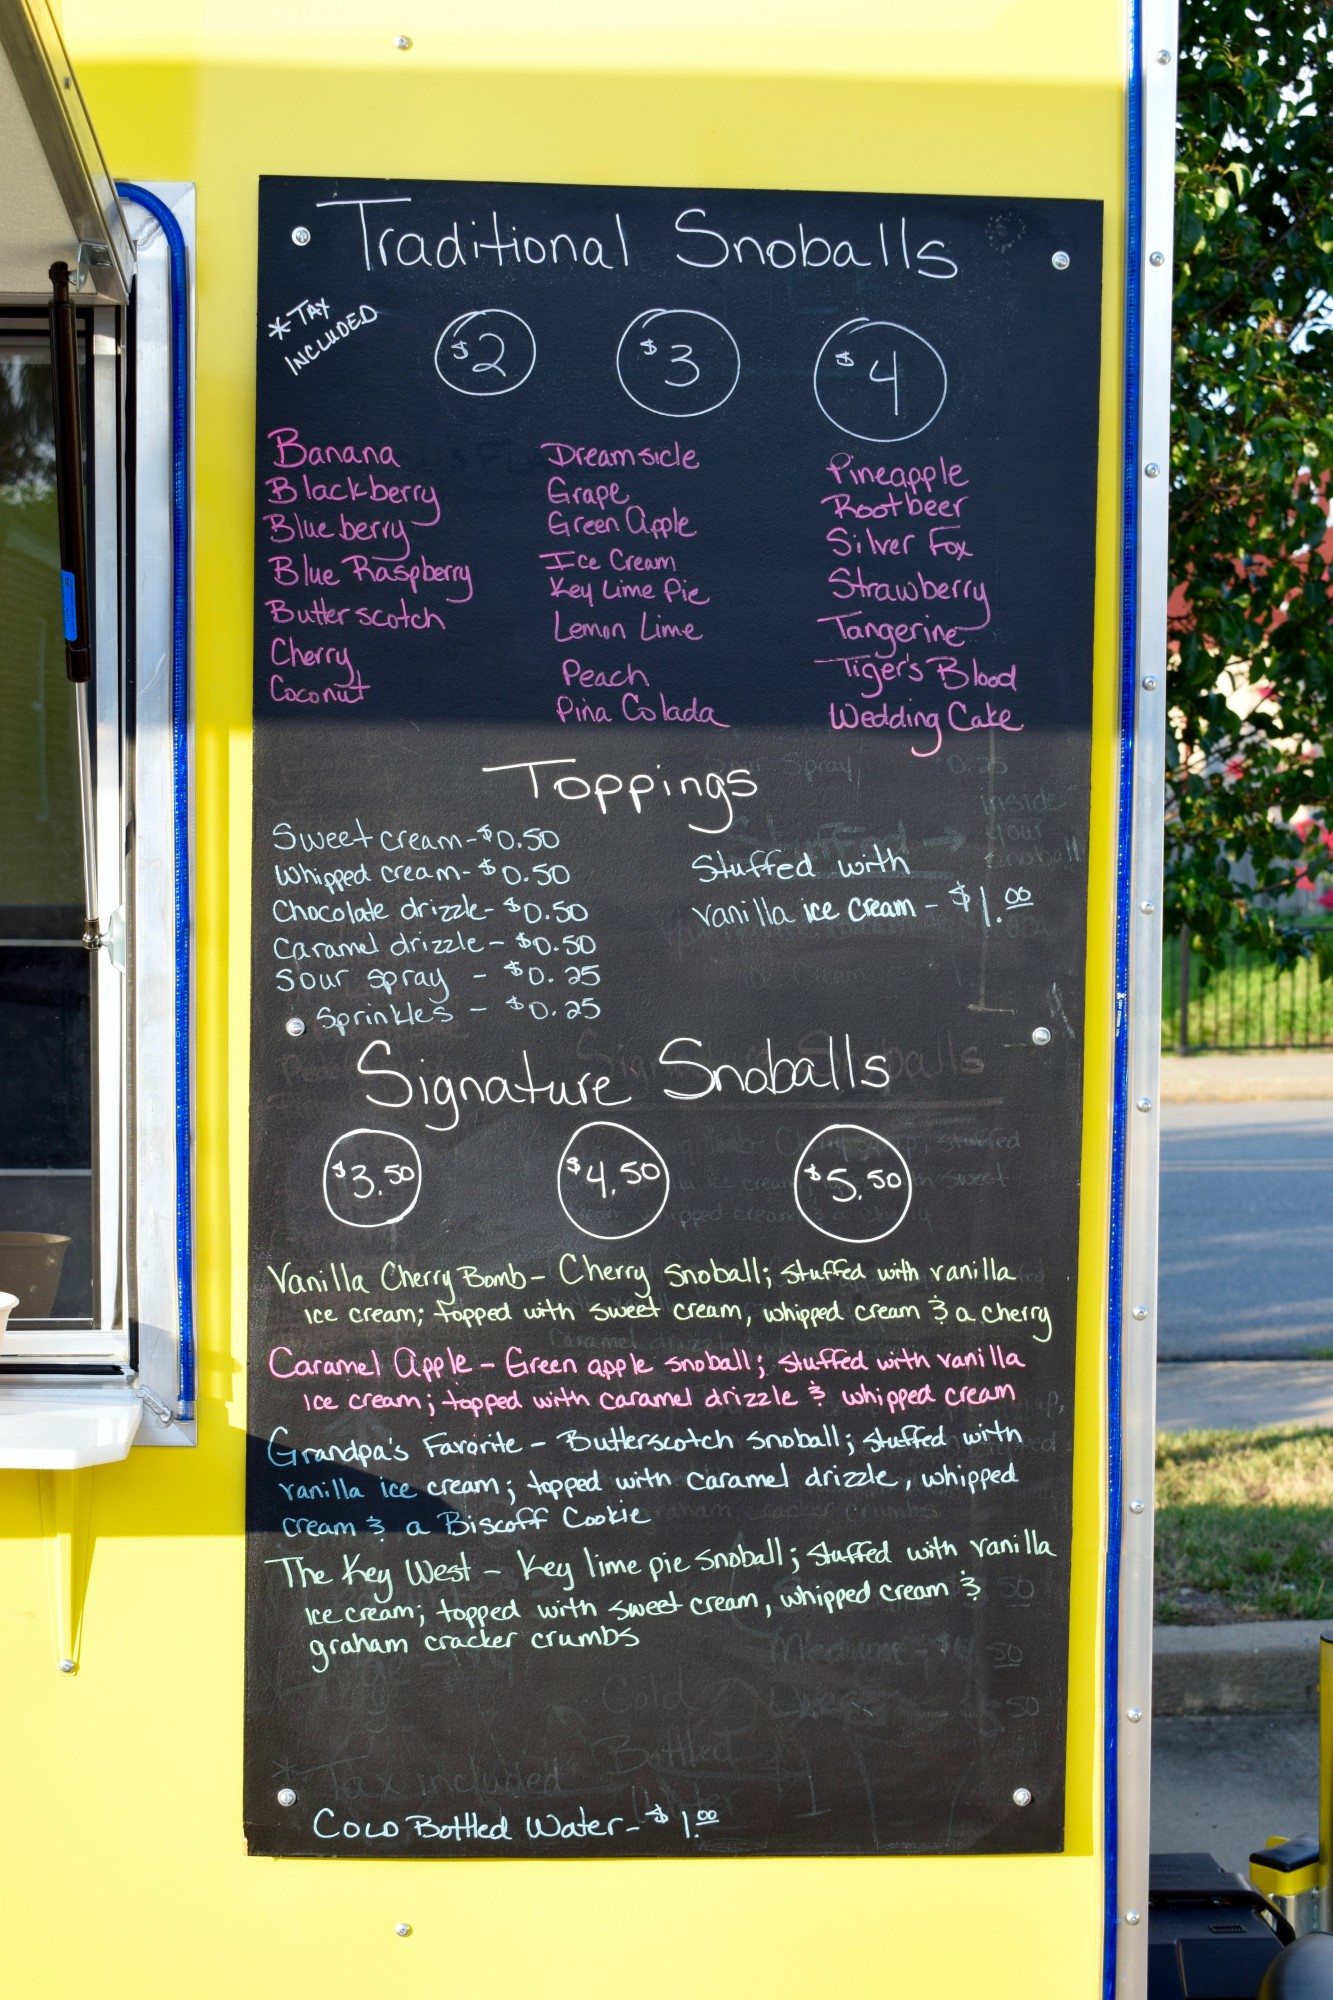 Traditional Snoballs
* TAX
INCLUDED
$2
$3
$4
Banana
Blackberry
Blueberry
Blue Raspberry
Butterscotch
Cherry
Coconut
Dreamsicle
Grape
Green Apple
Ice Cream
Key Lime Pie
Lemon Lime
Peach
Pina Colada
Pineapple
Rootbeer
Silver Fox
Strawberry
Tangerine
Tiger's Blood
Wedding Cake
Toppings
Sweet cream - $0.50
Whipped cream - $0.50
Chocolate drizzle - $0.50
Caramel drizzle - $0.50
Sour spray - $0.25
Sprinkles - $0.25
Stuffed with
vanilla ice cream - $1.00
Signature Snoballs
$3.50
$4.50
$5.50
Vanilla Cherry Bomb - Cherry snoball; stuffed with vanilla
ice cream; topped with sweet cream, whipped cream & a cherry
Caramel Apple - Green apple snoball; stuffed with vanilla
ice cream; topped with caramel drizzle & whipped cream
Grandpa's Favorite - Butterscotch snoball; stuffed with
vanilla ice cream; topped with caramel drizzle, whipped
cream & a Biscoff Cookie
The Key West - Key lime pie snoball; stuffed with vanilla
ice cream; topped with sweet cream, whipped cream &
graham cracker crumbs
Cold Bottled Water - $1.00